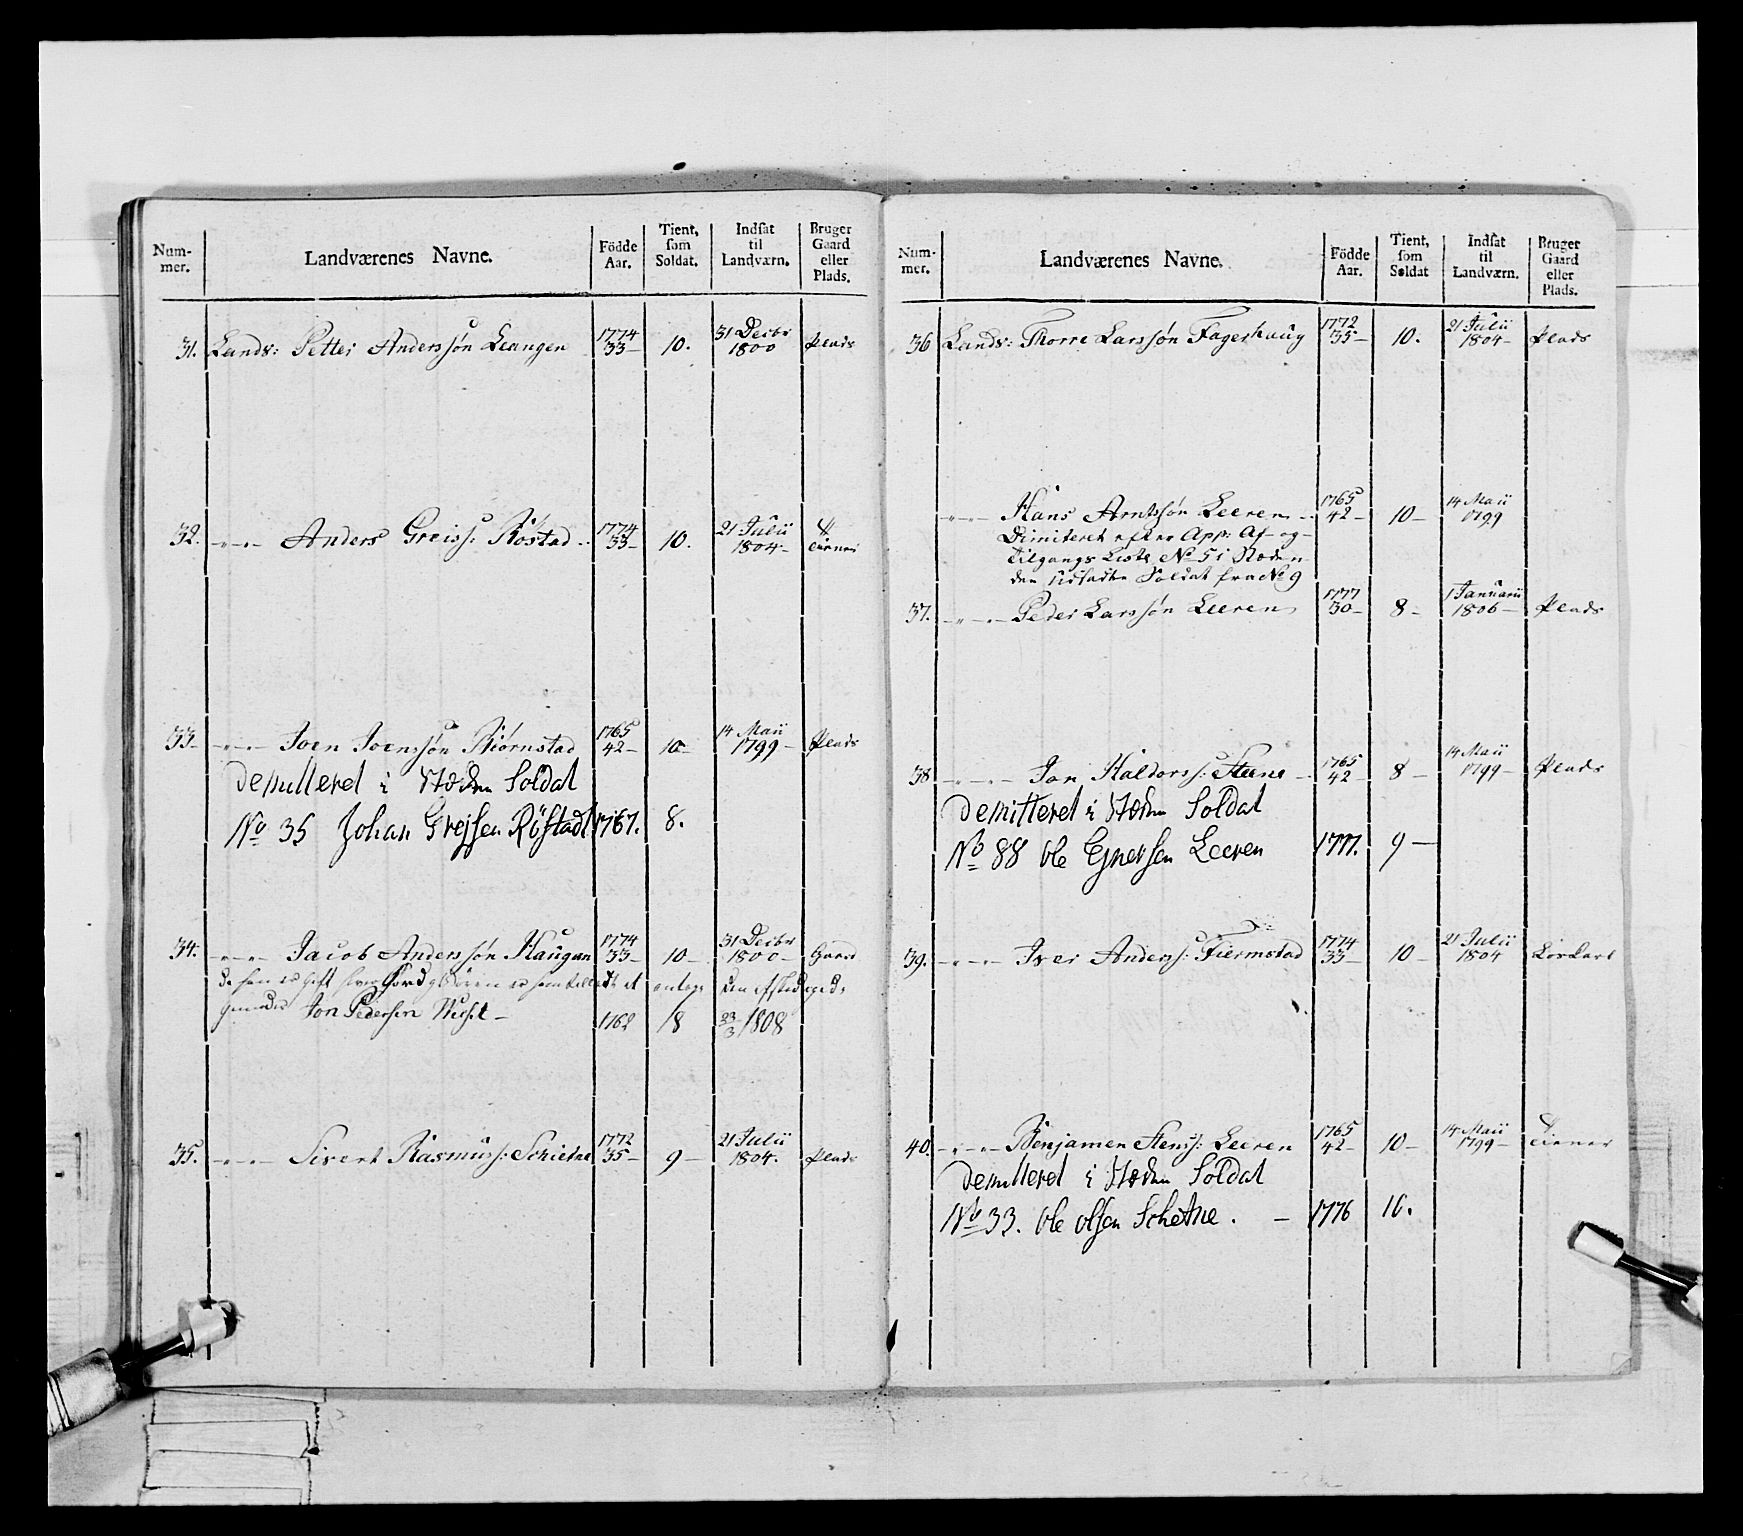 Num-
mer.
Landværenes Navne.
Födde
Aar.
Tient,
som
Soldat.
Indsat
til
Landværn.
Bruger
Gaard
eller
Plads.
31. Lands: Petter Anderssøn Leangen 1774 33- 10. 31 Decbr 1800 Plads
32. -"- Anders Greiss: Røstad 1774 33- 10. 21 Julii 1804- tiener
33- -"- Joen Joenssøn Biørnstad 1765 42- 10- 14 Maii 1799- Plads
Demitteret i Stæden Soldat
No 35 Johan Grejsen Røstad 1767. 8.
34. -"- Jacob Anderssøn Haugan 1774 33- 10- 31 Decbr 1800- Gaard
Jon Pedersen 1762 18 23/3 1808
35. -"- Sivert Rasmuss: Schietne 1772 35- 9- 21 Julii 1804. Plads
Num-
mer.
Landværenes Navne.
Födde
Aar.
Tient,
som
Soldat
Indsat
til
Landværn.
Bruger
Gaard
eller
Plads.
36 Lands: Thorre Larssøn Fagerhaug 1772 35- 10. 21 Julii 1804- Plads
-"- Hans Arntssøn Leeren 1765 42- 10- 14 Maii 1799
Dimiteret efter App: Af- og-
Tilgangs Liste No 5 i Stæden
den udsadte Soldat fra No 9
37. -"- Peder Larssøn Leeren 1777 30- 8- 1 Januarii 1806- Plads
38 -"- Jon Haldorss: Steene 1765 42- 8- 14 Maii 1799- Plads
Demitteret i Stæden Soldat
No 88 Ole Ejnersen Leeren 1777. 9-
39. -"- Iver Anderss: Fiermstad 1774 33- 10- 21 Julii 1804 Løskarl
40. -"- Benjamen Stenss: Leeren 1765 42- 10- 14 Maii 1799- tiener
Demitteret i Stæden Soldat
No 33. Ole Olsen Schetne. - 1776 16.